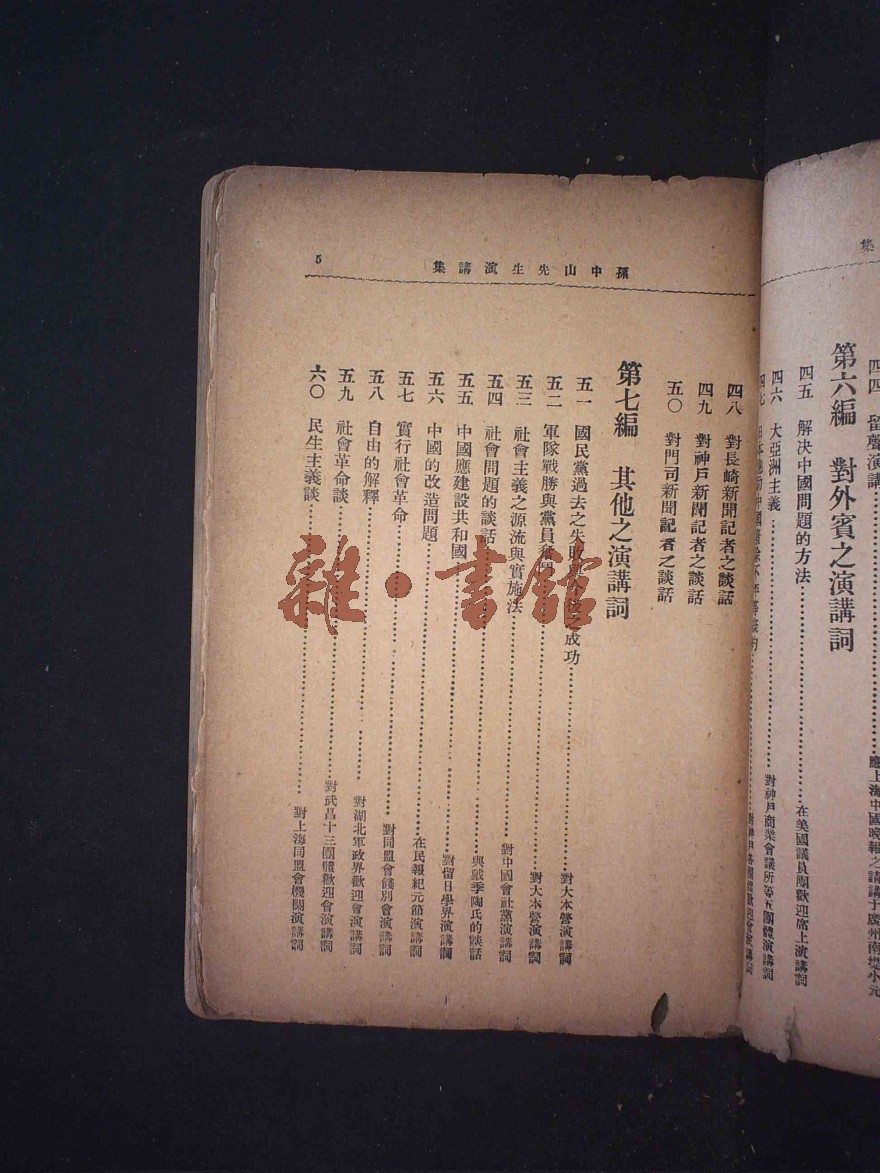 集
四四 留聲演講 應上海中國晚報之講講于廣州南堤小
第六編 對外賓之演講詞
四五 解决中國問題的方法 在美國議員團歡迎席上演講詞
四六 大亞洲主義 對神戶商業會議所等五團體演講詞
四七 中國 對神戶各團體歡迎會演講詞
孫中山先生演講集 5
四八 對長崎新聞記者之談話
四九 對神戶新聞記者之談話
五〇 對門司新聞記者之談話
第七編 其他之演講詞
五一 國民黨過去之失敗 之成功 對大本營演講詞
五二 軍隊戰勝與黨員奮鬥 對大本營演講詞
五三 社會主義之源流與實施法 對中國社會黨演講詞
五四 社會問題的談話 與戴季陶氏的談話
五五 中國應建設共和國 對留日學界演講詞
五六 中國的改造問題 在民報紀元節演講詞
五七 實行社會革命 對同盟會餞別會演講詞
五八 自由的解釋 對湖北軍政界歡迎會演講詞
五九 社會革命談 對武昌十三團體歡迎會演講詞
六〇 民生主義談 對上海同盟會機關演講詞
雜·書館